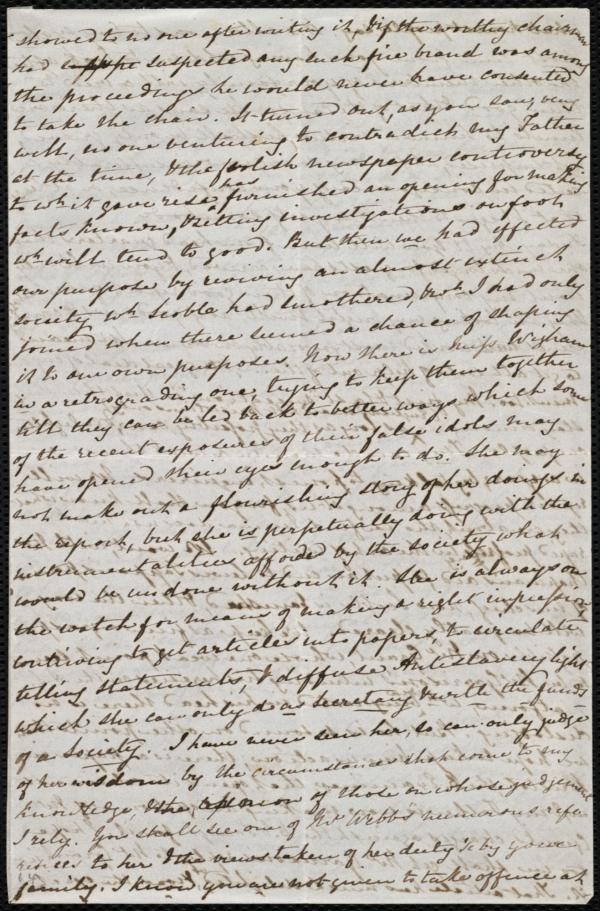 showed to no one after writing it, & if the worthy chairman
had suspected any such fire brand was among
the proceedings he would never have consented
to take the chair. It turned out, as you say, very
well, no one venturing to contradict my Father
at the time, & the foolish newspaper controversy
to wh it gave rise, has furnished an opening for making
facts known, & setting investigations on foot
wh will tend to good. But then we had effected
our purpose by reviving an almost extinct
society wh Scoble had smothered, & wh I had only
joined when there seemed a chance of shaping
it to our own purposes. Now there is Miss Wigham
in a retrograding one, trying to keep them together
till they can be led back to better ways which some
of the recent exposures of their false idols may
have opened their eyes enough to do. She may
not make out a flourishing story of her doings in
the report, but she is perpetually doing with the
instrumentalities afforded by the society what
would be undone without it. She is always on
the watch for means of making a right impression,
contriving to get articles into papers, to circulate
telling statements, & diffuse Antislavery light
which she can only do as secretary & with the funds
of a Society. I have never seen her, so can only judge
of her wisdom by the circumstances that come to my
knowledge, & the opinion of those on whose judgement
I rely. You shall see one of Mr Webb's numerous refe
rences to her & the views taken of her duty by
family. I know you are not given to take offence at